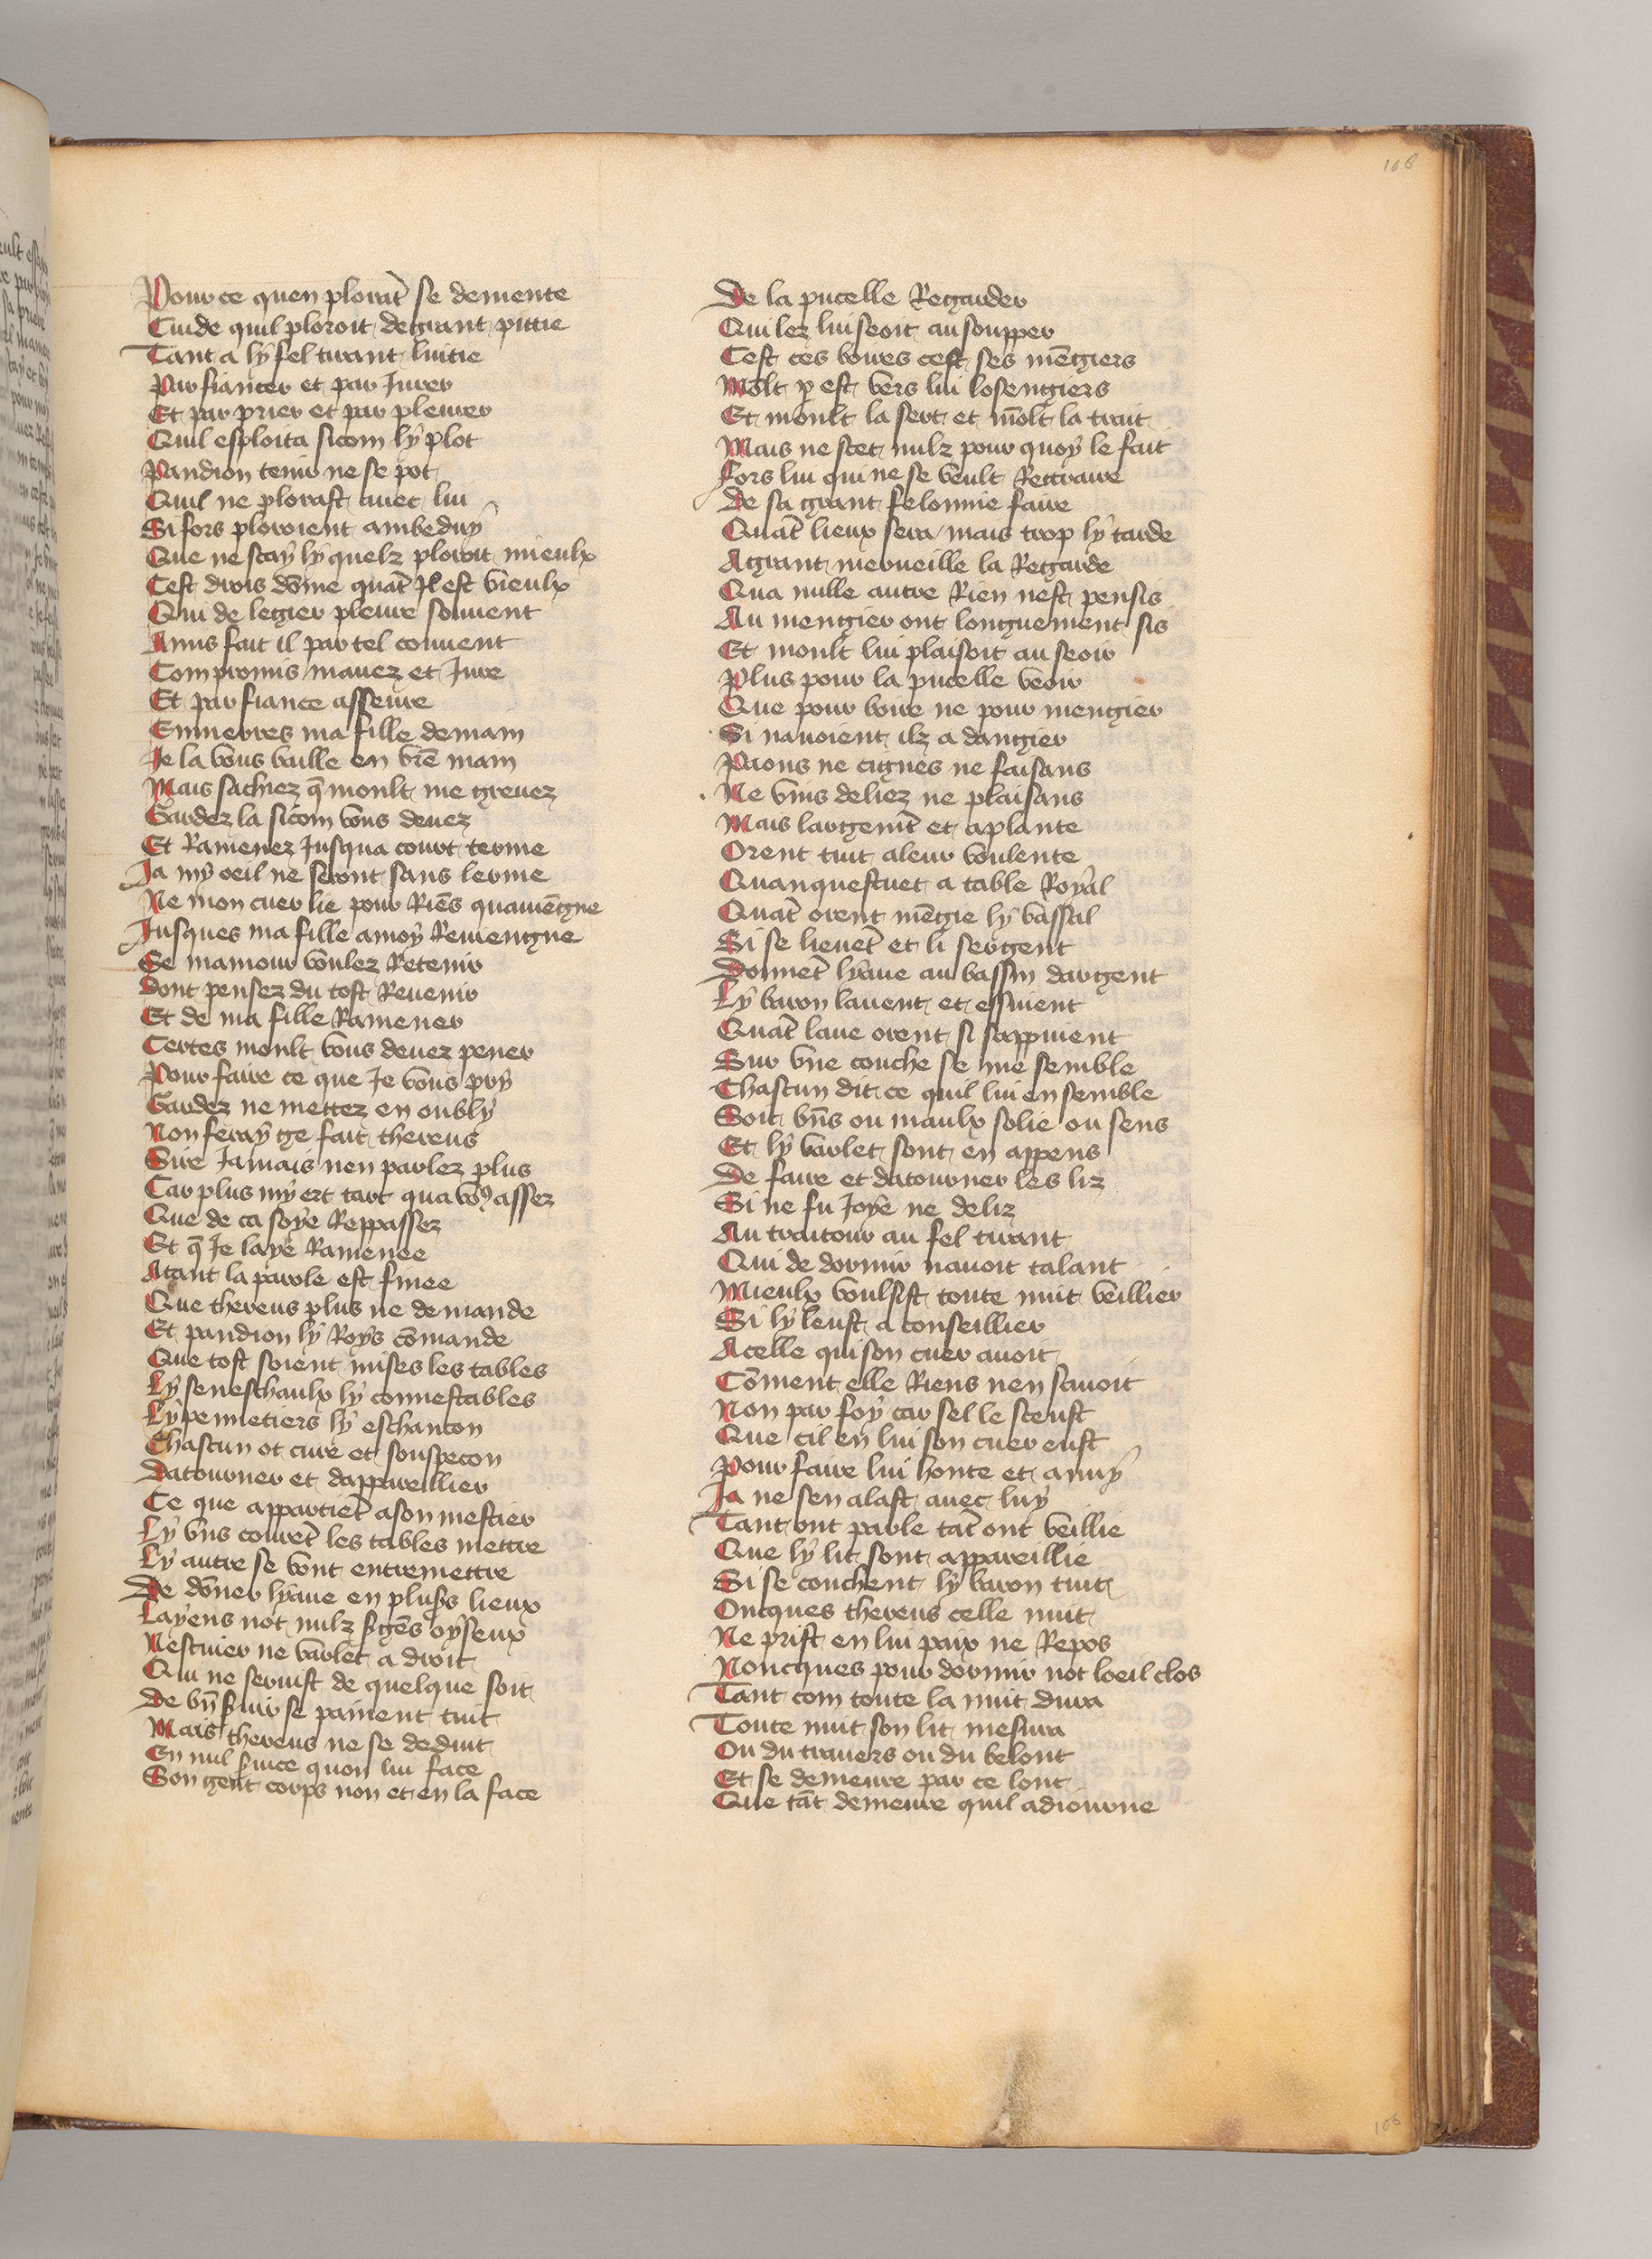 106
Pour ce quen plorāt se demente
Cuide quil ploroit de grant pittie
Tant a ly fel tirant luitie
Par fiancer et par Jurer
Et par prier et par pleurer
Quil esploita si com ly plot
Pandion tenir ne se pot
Quil ne plorast auec lui
Si fors ploroient ambeduy
Que ne scay ly quelz ploroit mieulx
Cest drois dōme quāt Il est vieulx
Qui de legier pleure souuent
Amis fait il par tel conuent
Com promis mauez et Jure
Et par fiance asseure
Enmenres ma fille demain
Je la vous baille en vr̄e main
Mais sachiez q̄ moult me greuez
Gardez la si com vous deuez
Et Ramenez Jusqua court terme
Ja my oeil ne seront sans lerme
Ne mon cuer lie pour Riēs quauiēgne
Jusques ma fille a moy Reuiengne
Se mamour voulez Retenir
Dont pensez du tost Reuenir
Et de ma fille Ramener
Certes moult vous deuez pener
Pour faire ce que Je vous pry
Gardez ne mettez en oubly
Non feray ge fait thereus
Sire Jamais nen parlez plus
Car plus my ert tart qua vo9 assez
Que de ca soye Reppassez
Et q̄ Je laye Ramenee
Atant la parole est finee
Que thereus plus ne demande
Et pandion ly Roys cōmande
Que tost soient mises les tables
Ly seneschaulx ly connestables
Ly pennetiers ly eschancon
Chascun ot cure et souspecon
Datourner et dappareillier
Ce que appartiēt a son mestier
Ly vns courēt les tables mettre
Ly autre se vont entremettre
De dōner lyaue en plus's lieux
Layens not nulz s'gēs oyseux
Nescuier ne varlet a droit
Qui ne seruist de quelque soit
De bn̄ s'uir se painent tuit
Mais thereus ne se deduit
En nul s'uice quon lui face
Son gent corps non et en la face
De la pucelle Regarder
Qui lez lui seoit au soupper
Cest ces boires cest ses mēgiers
Mōlt p est vers lui losengiers
Et moult la sert et mōlt la trait
Mais ne scet nulz pour quoy le fait
Fors lui qui ne se veult Rettraire
De sa grant felonnie faire
Quāt lieux sera mais trop ly tarde
A grant merueille la Regarde
Qua nulle autre Rien nest pensis
Au mengier ont longuement sis
Et moult lui plaisoit au seoir
Plus pour la pucelle veoir
Que pour boire ne pour mengier
Si nauoient ilz a dangier
Paons ne cignes ne faisans
Ne vins deliez ne plaisans
Mais largemēt et a plante
Orent tuit a leur voulente
Quanquestuet a table Royal
Quāt orent mēgie ly vassal
Si se lieuēt et li sergent
Donnēt lyaue au bassin dargent
Ly baron lauent et essuient
Quāt laue orent si sappuient
Sur vne couche se me semble
Chascun dit ce quil lui en semble
Soit bn̄s ou maulx folie ou sens
Et ly varlet sont en appens
De faire et datourner les liz
Si ne fu Joye ne deliz
Au traitour au fel tirant
Qui de dormir nauoit talant
Mieulx voulsist toute nuit veillier
Si ly leust a conseillier
A celle qui son cuer auoit
Cōment elle Riens nen sauoit
Non par foy car sel le sceust
Que cil en lui son cuer eust
Pour faire lui honte et anuy
Ja ne sen alast auec luy
Tant ont parle tāt ont veillie
Que ly lit sont appareillie
Si se couchent ly baron tuit
Oncques thereus celle nuit
Ne prist en lui paix ne Repos
Noncques pour dormir not loeil clos
Tant com toute la nuit dura
Toute nuit son lit mesura
Ou du trauers ou du belont
Et se demeure par ce lont
Que tāt demeure quil adiourne
106